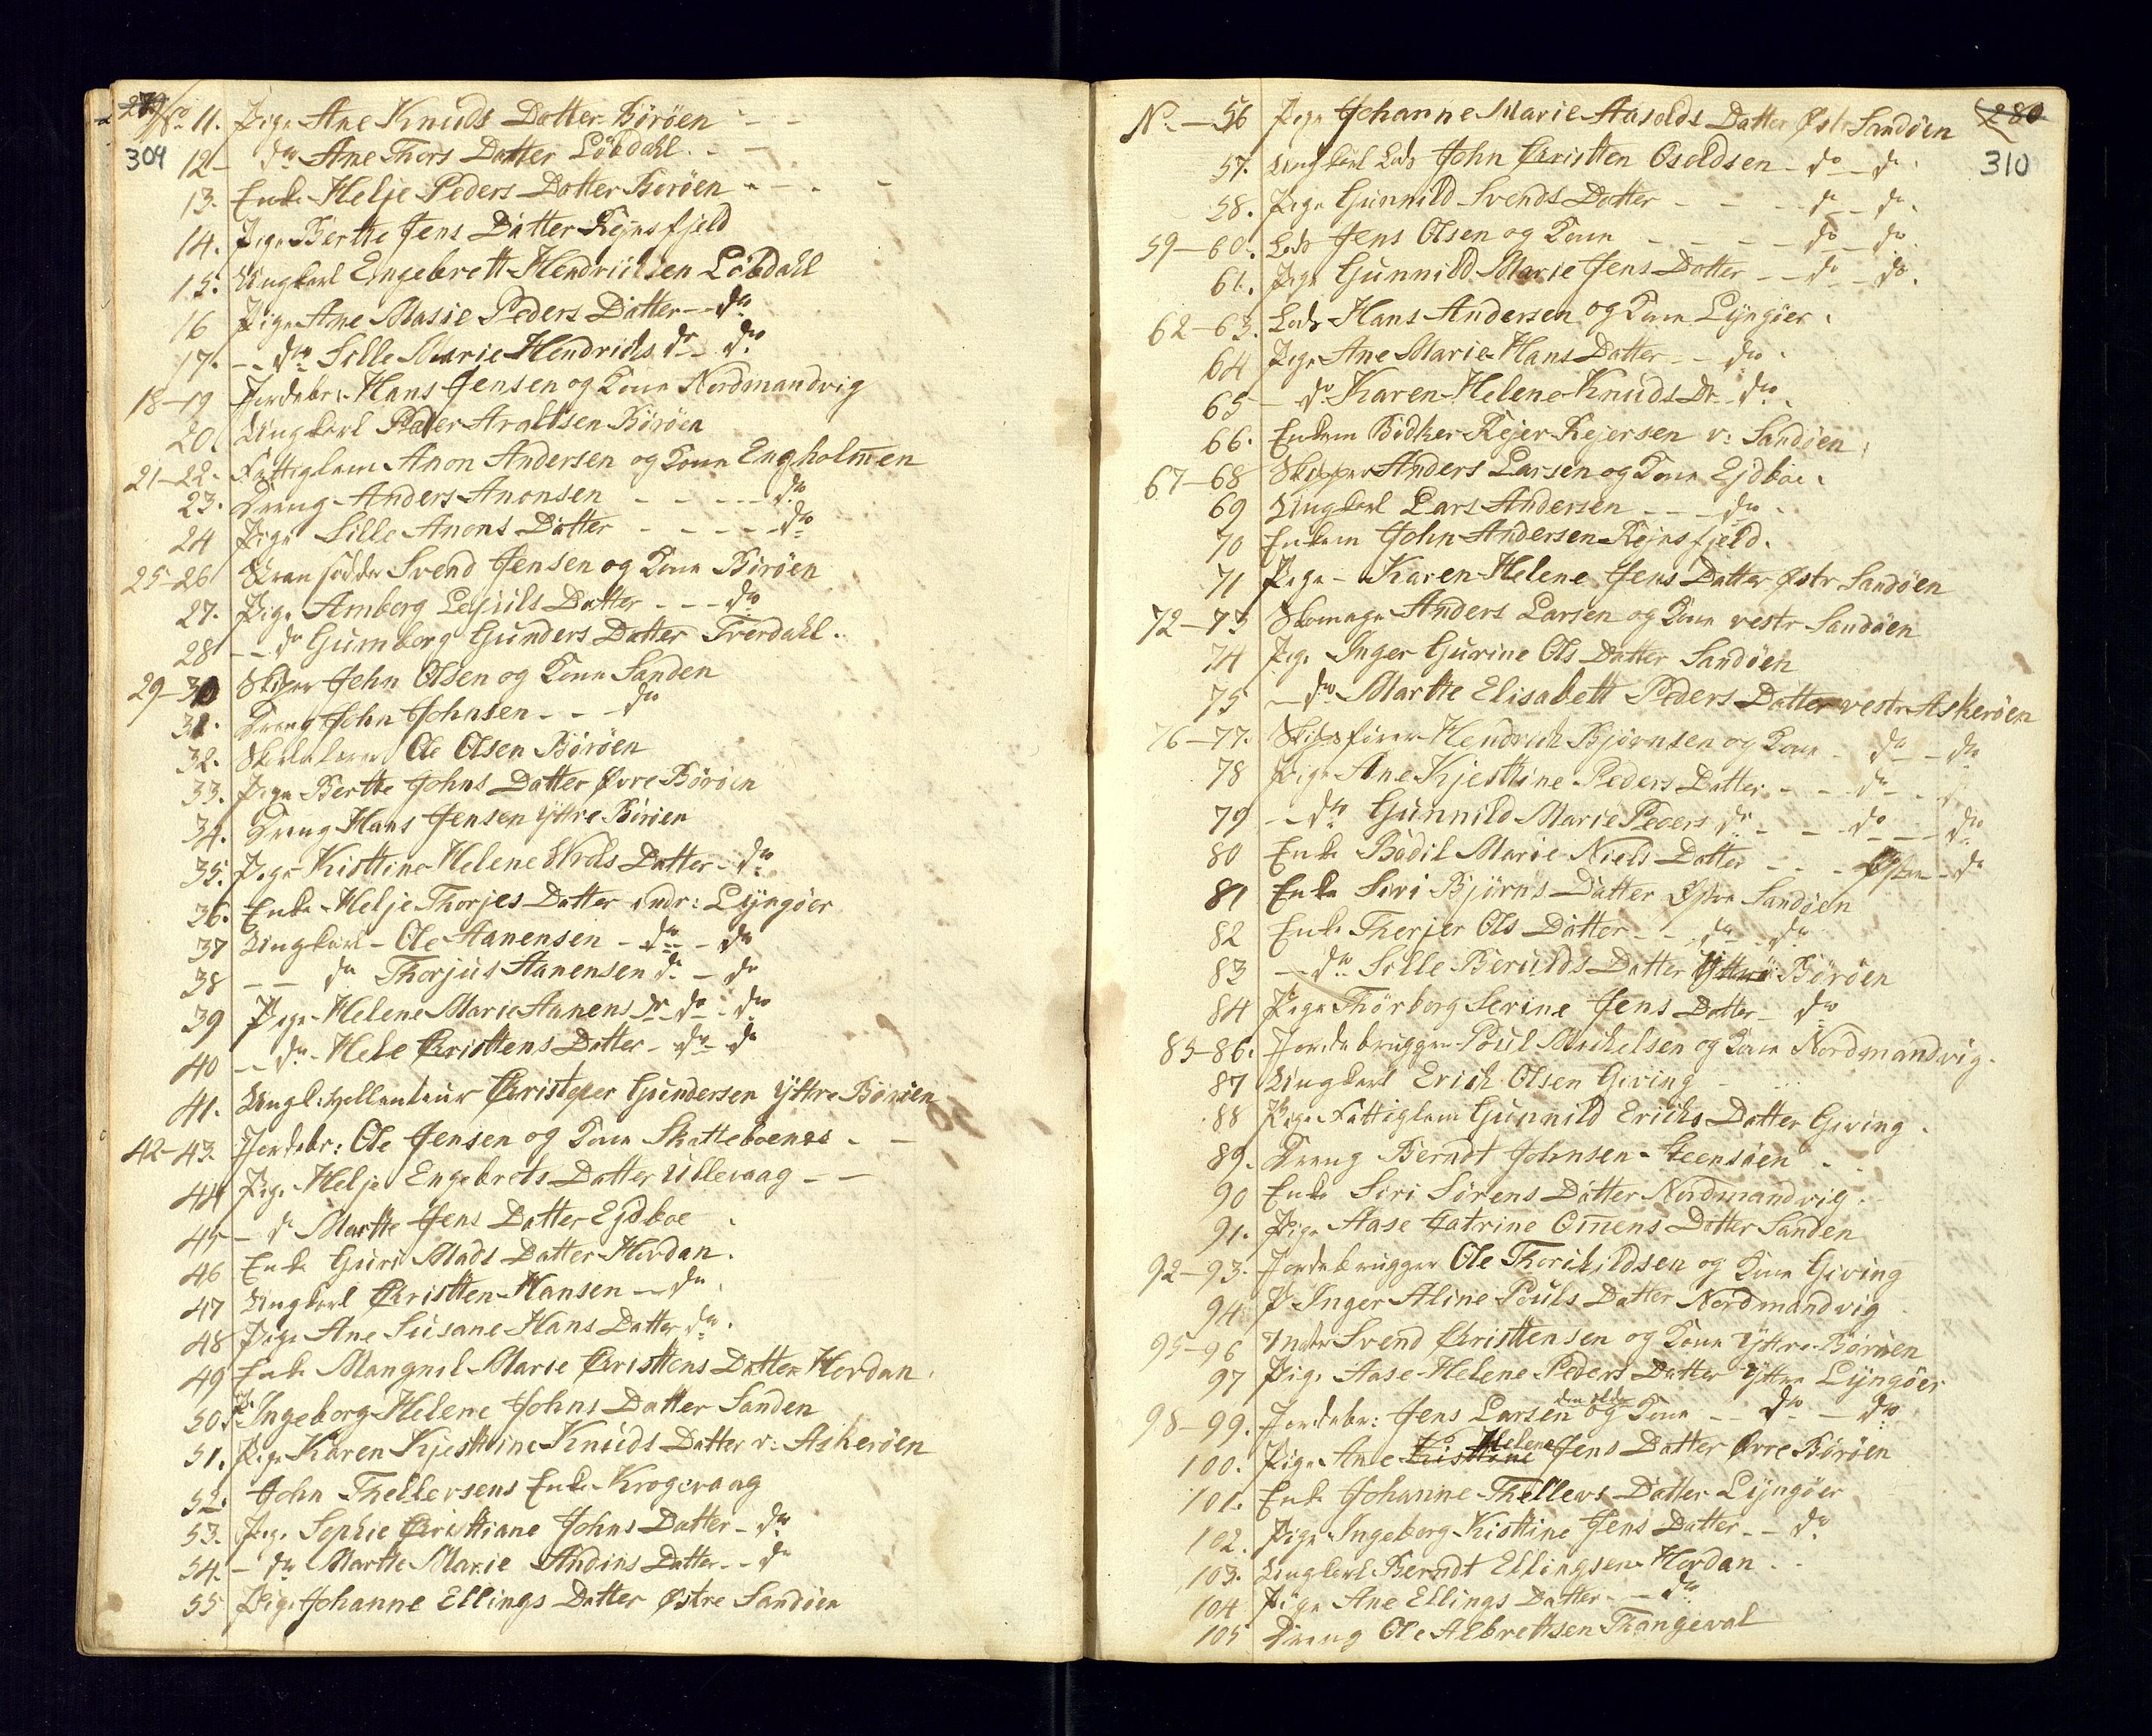 279
309
No 11. Pige Ane Knuds Datter Böröen - -
12 - do Ane Thors Datter Löbdahl. - -
13. Enke Helje Peders Datter Boröen - - . -
14. Pige Berthe Jens Datter Rejnsfjeld
15. Ungkarl Engebrett Hendrichsen Löbdahl
16 Pige Ane Marie Peders Datter - do
17. - - do Sille Marie Hendrichs do - do
18-19 Jordebr: Hans Jensen og Kone Nordmandvig
20. Ungkarl Peder Araldsen Böröen
21-22. Fattiglem Anon Andersen og Kone Engholmen
23. Dreng Anders Anonsen - - - - do
24 Pige Sille Anons Datter - - - - do
25-26 Svend Jensen og Kone Böröen
27. Pige Amberg Lejuls Datter - - - do
28 - - do Gumborg Gunders Datter Tverdahl.
29-30 Skiper John Olsen og Kone Sanden
31. Dreng John Johnsen - - - do
32. Skolelærer Ole Olsen Böröen
33. Pige Berthe Johns Datter Øvre Böröen
34. Dreng Hans Jensen Yttre Böröen
35. Pige Kisttine Helene Datter - do
36. Enke Helje Thorjes Datter indr: Lÿngöer
37 Ungkarl - Ole Aanensen - do - do
38 - - do Thorjus Aanensen do - do
39 Pige Helene Marie Aanens Dr - do - do
40 - - do - Hele Christtens Datter - do - do
41. Ungk: Christoper Gundersen Yttre Böröen
42-43. Jordebr: Ole Jensen og Kone Skatteboenes - -
44 Pige Helje Engebrets Datter Ullevaag - -
45 - do Marthe Jens Datter Ejdboe .
46 Enke Guri Mads Datter Hordan.
47 Ungkarl Christten Hansen - do .
48 Pige Ane Susane Hans Datter do .
49 Enke Mangnil Marie Christtens Datter Hordan.
50. P. Ingeborg Helene Johns Datter Sanden
51. Pige Karen Kjesttine Knuds Datter v: Askeröen
52. John Thellersens Enke Krogevaag
53. Pige Sophie Christtiane Johns Datter - do
54. - do Marthe Marie Andins Datter - - do
55 Pige Johanne Ellings Datter Østre Sandöen
280
310
No - 56 Pige Johanne Marie Aasolds Datter Østr Sandöen
57. Ungkarl Lods John Christten Osoldsen - do - do .
58. Pige Gunnild Svends Datter - - - - do - do .
59-60. Lods Jens Olsen og Kone - - - - do - do
61. Pige Gunnild Marie Jens Datter - - do - do .
62-63. Lods Hans Andersen og Kone Lÿngöer .
64 Pige Ane Marie Hans Datter - - do .
65 - do Karen Helene Knuds Dr - do .
66. Enkem Bödker Rejer Rejersen v: Sandöen .
67-68 Skipper Anders Larsen og Kone Ejdboe .
69 Ungkarl Lars Andersen - - - do .
70 Enkem John Andersen Rejnsfjeld.
71 Pige - Karen Helene Jens Datter Østr Sandöen
72-73 Skomager Anders Larsen og Kone vestr Sandöen
74 Pige Inger Gurine Ols Datter Sandöen
75 - do Marthe Elisabett Peders Datter vestr Askeröen
76-77. Skibsförer Hendrich Bjørnsen og Kone - do - do
78 Pige Ane Kjesttine Peders Datter - - do - do
79 - - do Gunnild Marie Peders do - - do - do
80 Enke Bodil Marie Niels Datter - - - Østre - do
81 Enke Siri Bjørns Datter Østre Sandöen
82 Enke Therjer Ols Datter - - do - do
83 - do Sille Berulds Datter Yttre Böröen
84 Pige Thorborg Serine Jens Datter - do
85-86. Jordebrugger Poul Michelsen og Kone Nordmandvig.
87 Ungkarl Erich Olsen Giving -
88 Pige Fattiglem Gunnild Erichs Datter Giving .
89. Dreng Berndt Johnsen Steensöen .
90 Enke Siri Sörens Datter Nordmandvig.
91. Pige Aase Catrine Omens Datter Sanden
92-93. Jordebrugger Ole Thorkildsen og Kone Giving
94. P Inger Aline Pouls Datter Nordmandvig
95-96 Svend Christtensen og Kone Yttre Böröen
97 Pige Aase Helene Peders Datter Yttre Lÿngöer
98-99. Jordebr: Jens Larsen den eldre og Kone - - do - do
100. Pige Ane Kisttine Helene Jens Datter Øvre Böröen
101. Enke Johanne Thellevs Datter Lÿngöer
102. Pige Ingeborg Kisttine Jens Datter - - do
103. Ungkarl Berndt Ellingsen Hordan . .
104 Pige Ane Ellings Datter - - do
105 Dreng Ole Albrettsen Thangeval